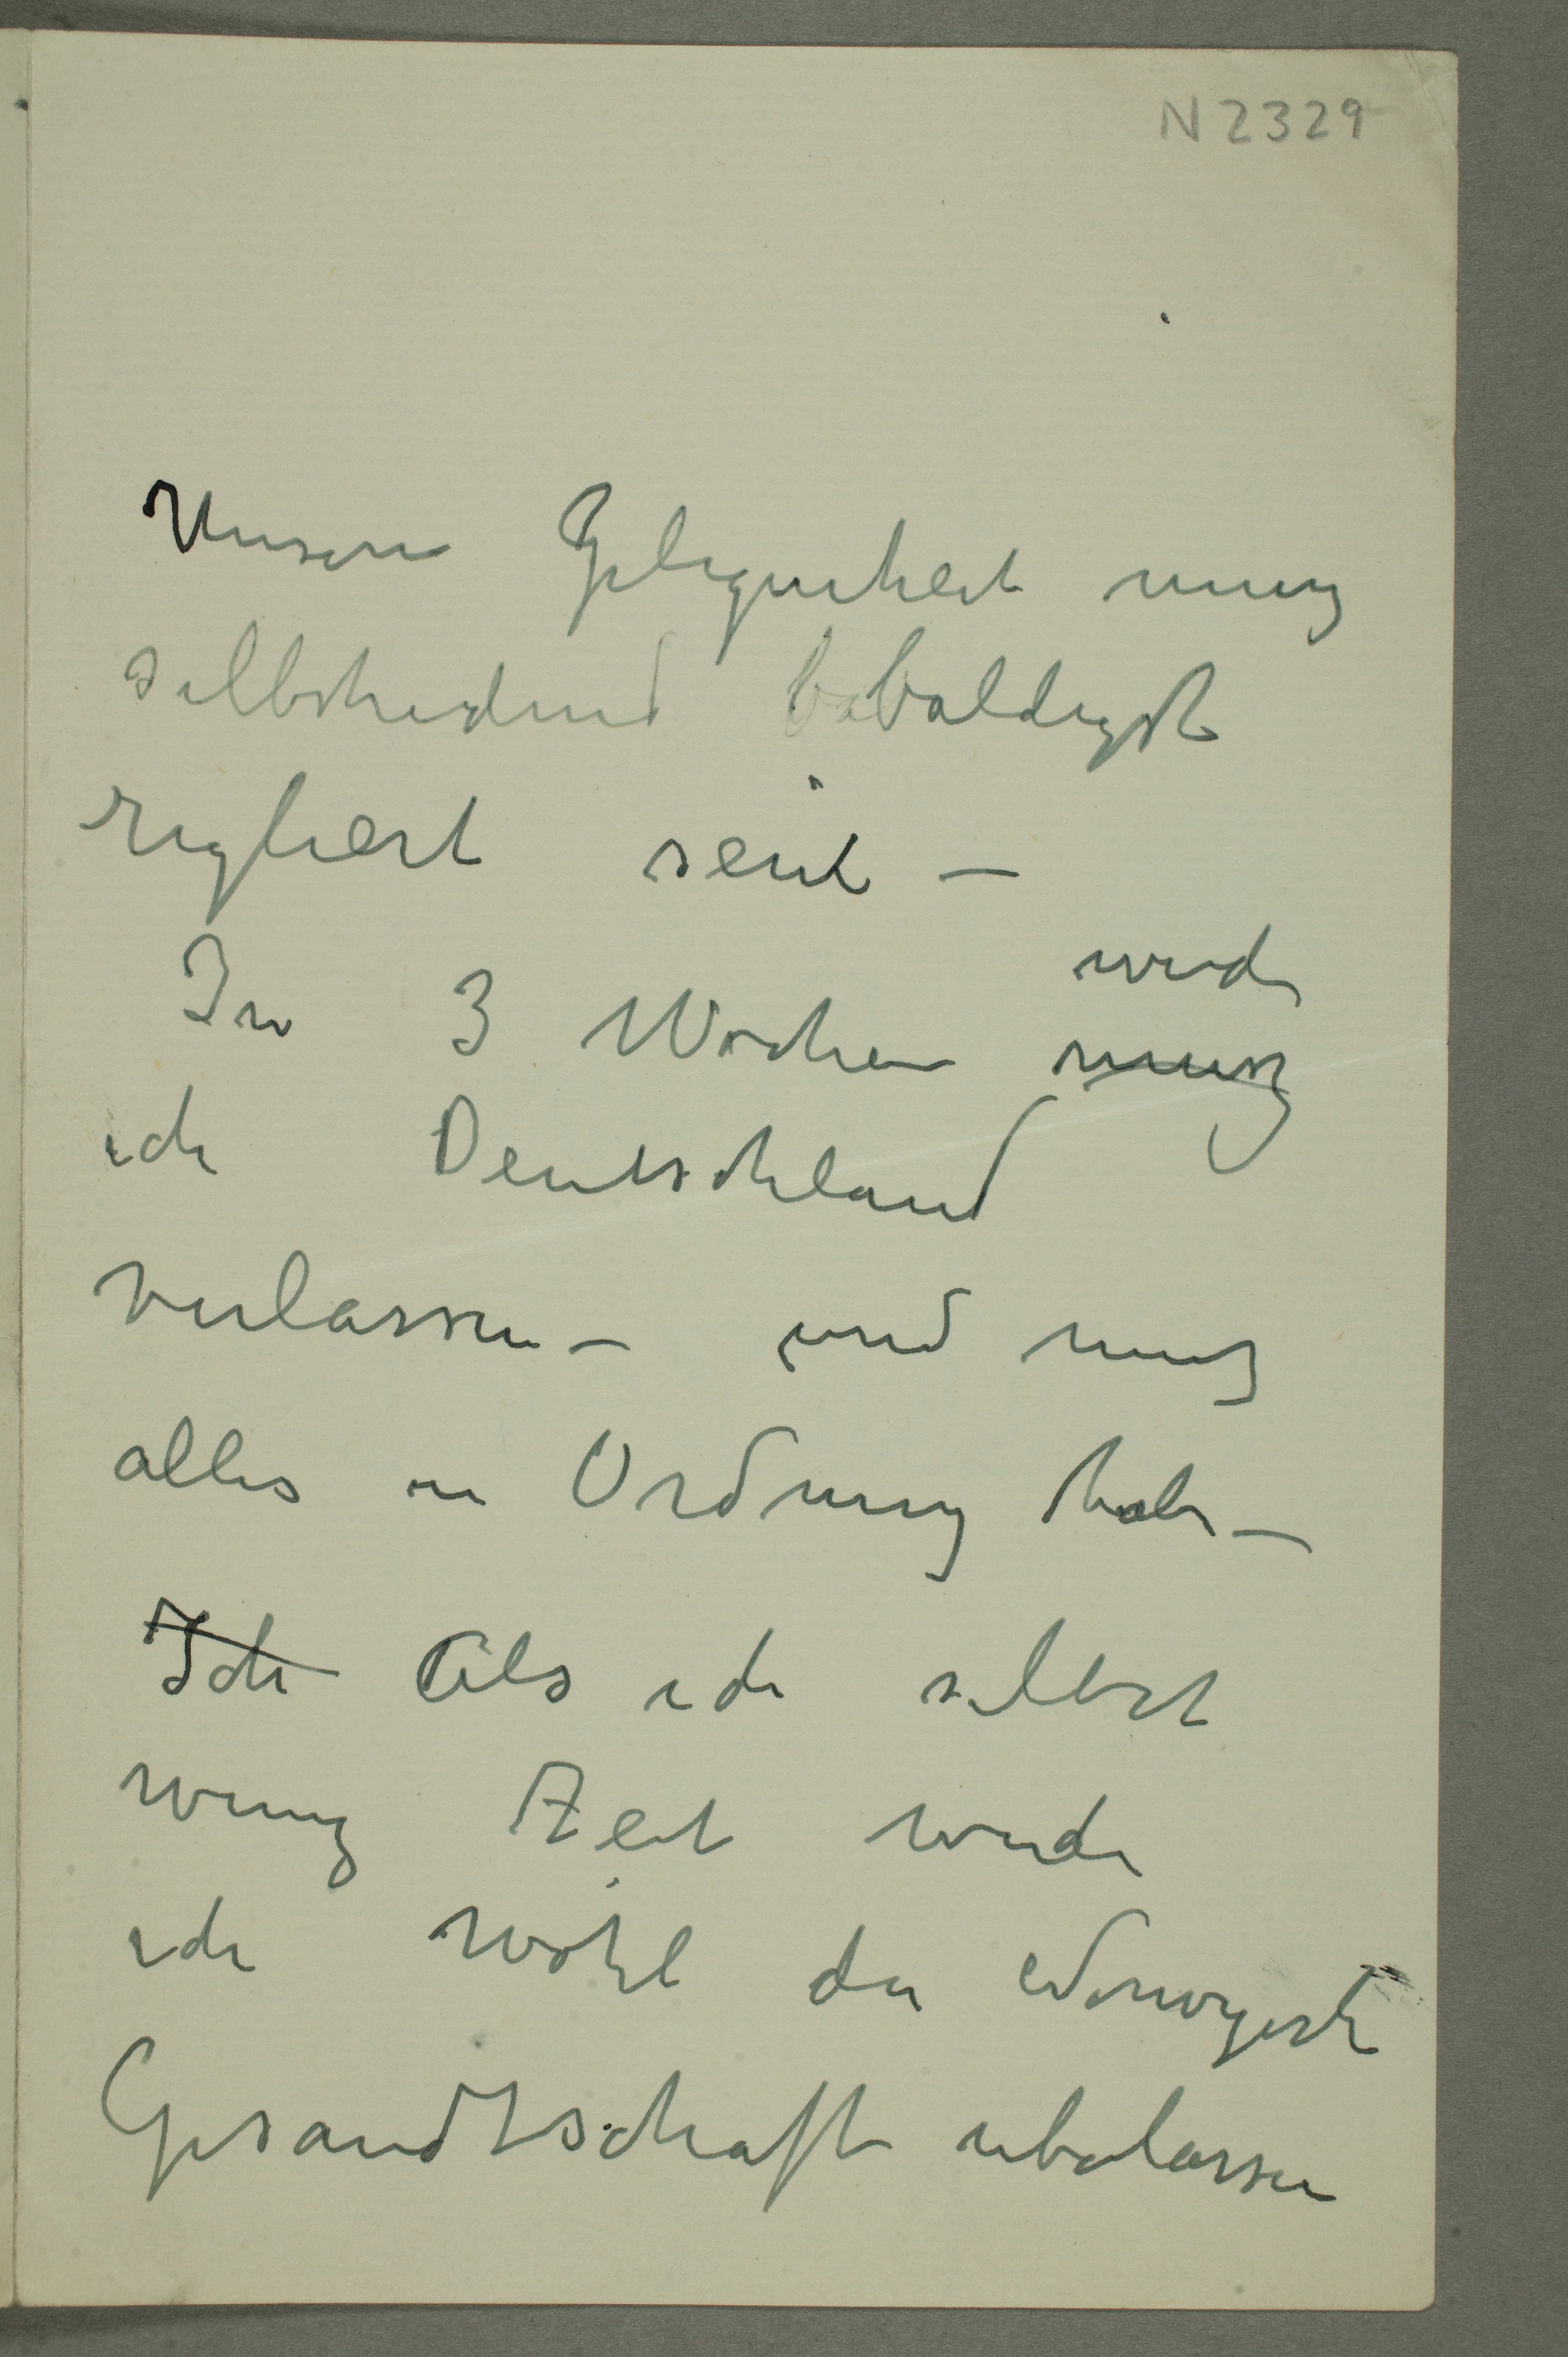 N 2329
Unsere Gelegenheit muss
selbstredend babaldigst
regliert seint –
werde
In 3 Wochen muss
ich Deutschland
verlassen – und muss
alles in Ordnung habe –
Ich Als ich selbst
wenig Zeit werde
ich wohl der Norwegisch
Gesandtschaft uberlassen